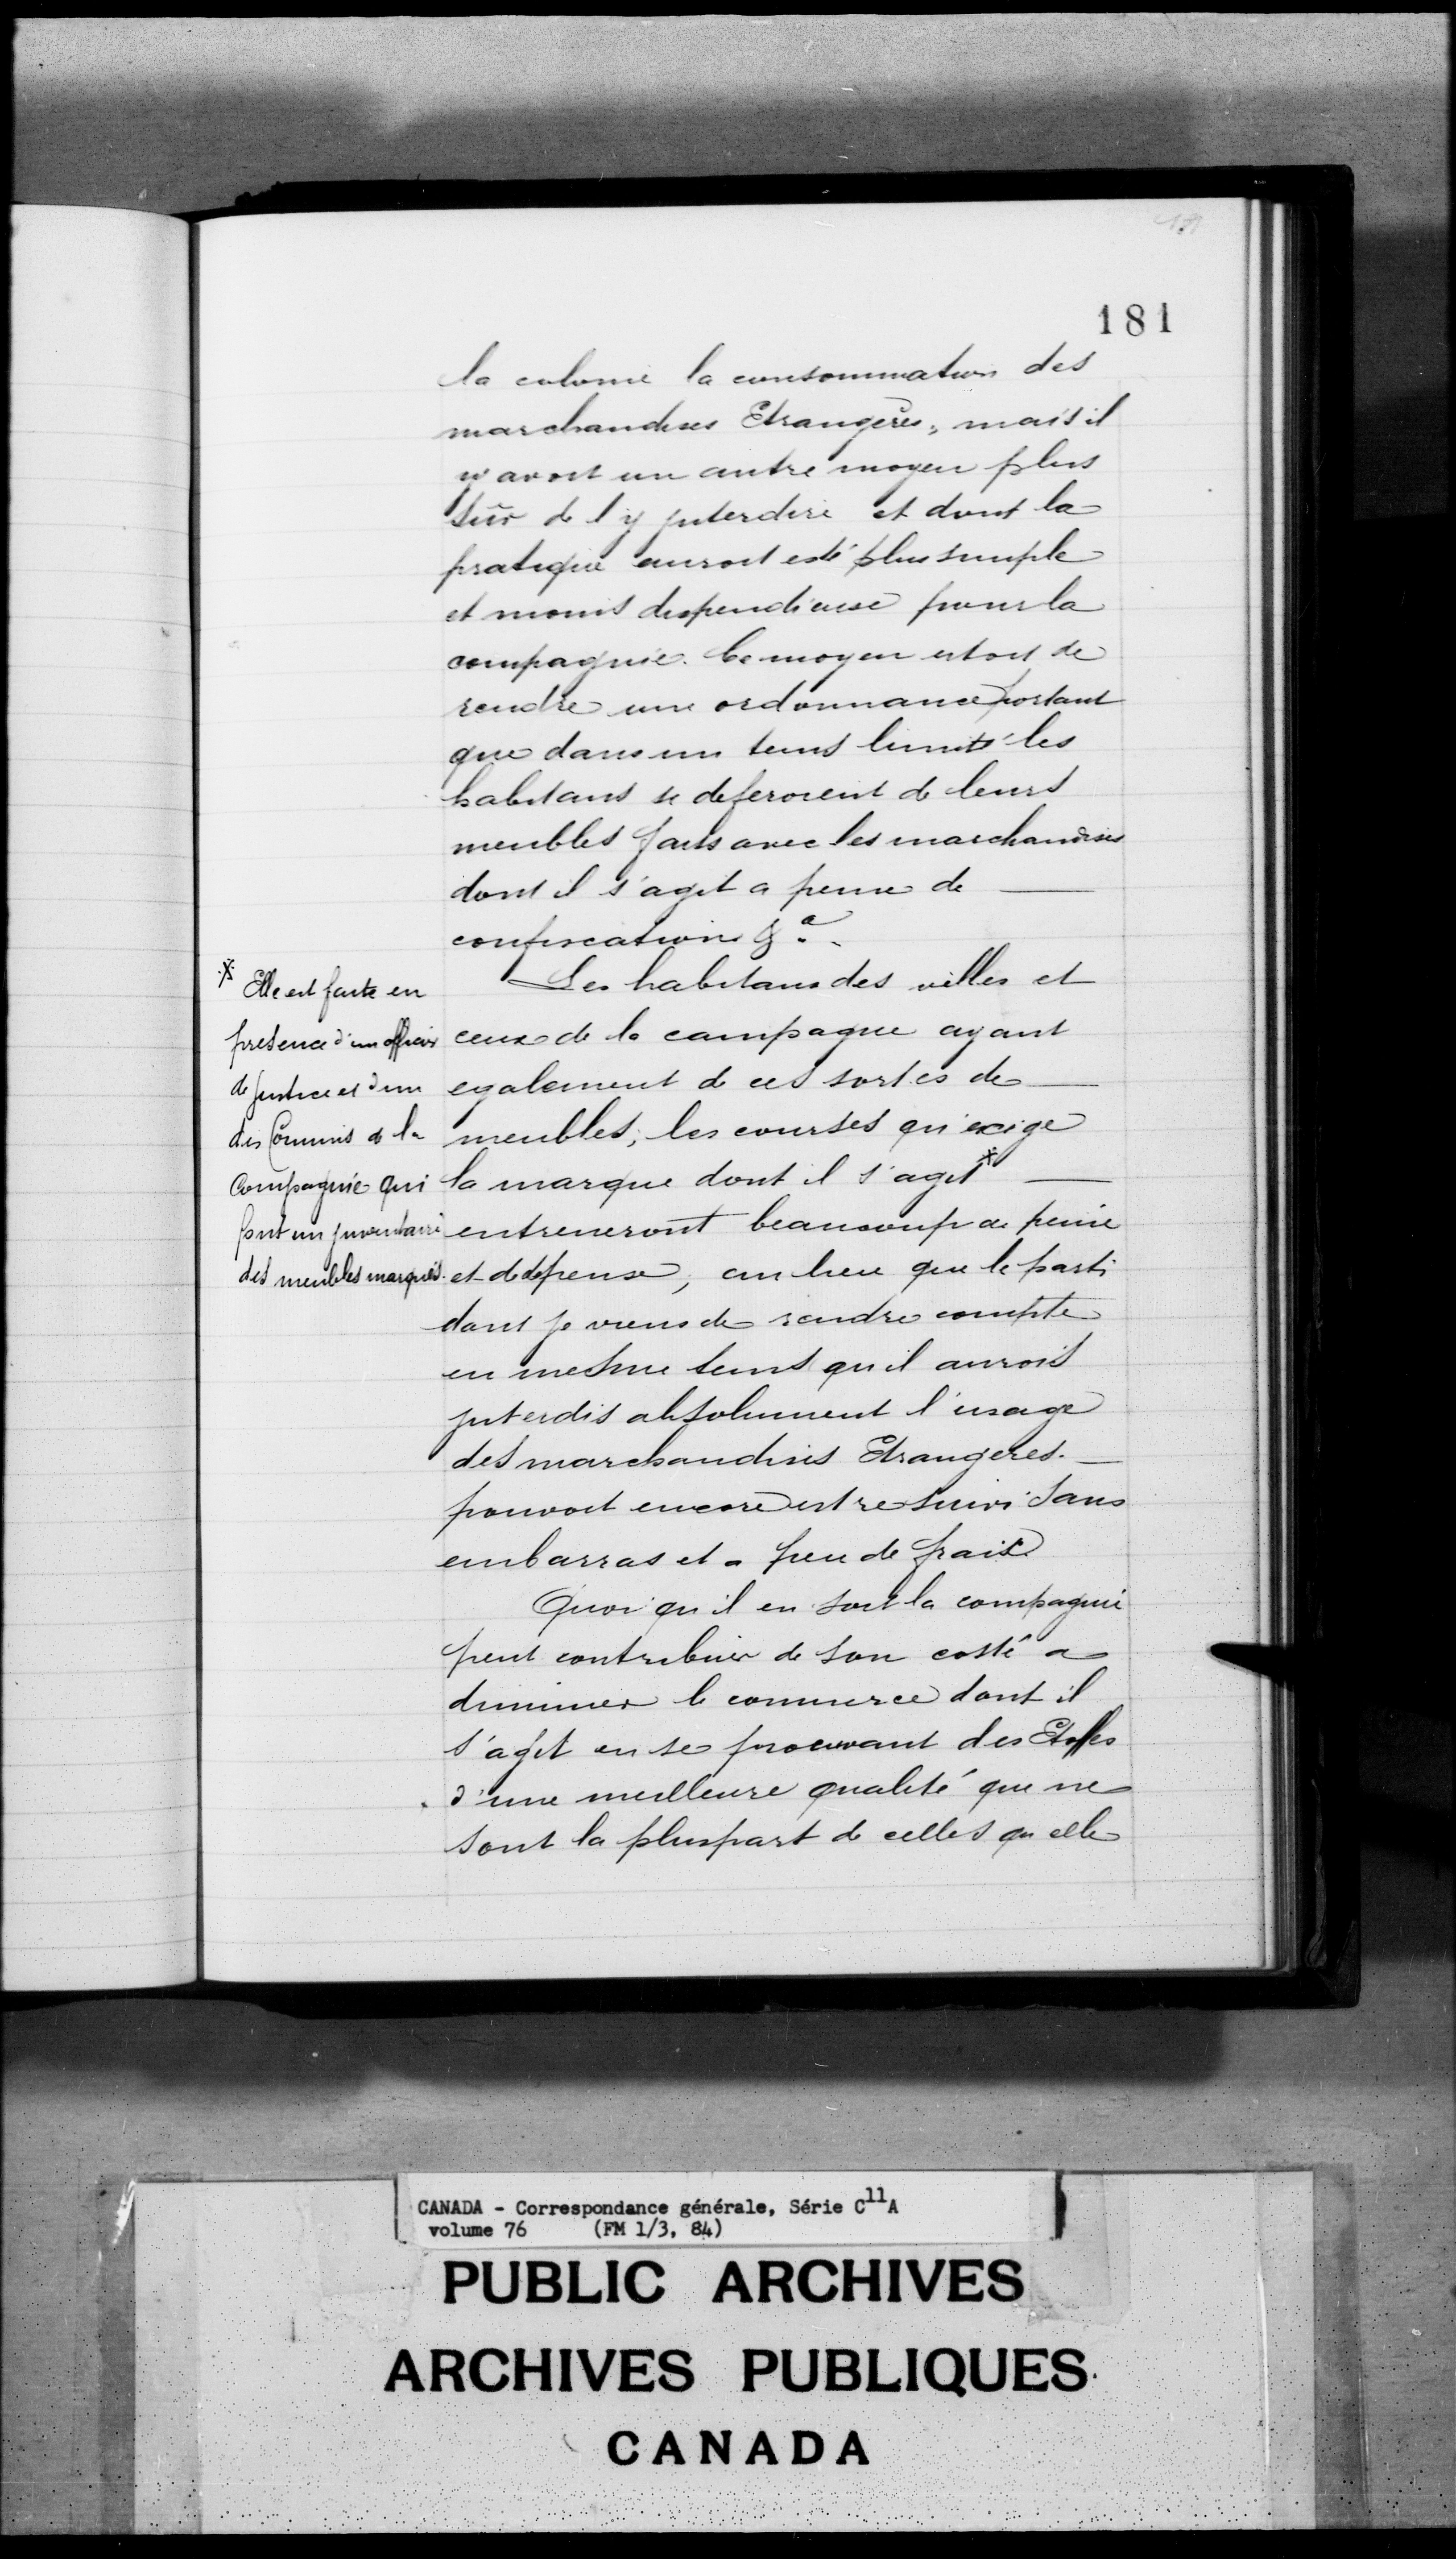 181
la colonie la consommation des
marchandises Etrangeres, mais il
y avoit un autre moyen plus
sûr de l'y jnterdire et dont la
pratique auroit esté plus simple
et moins dispendieuse pour la
compagnie. Ce moyen estoit de
rendre une ordonnance portant
que dans un tems limité les
habitans se deferoient de leurs
meubles faits avec les marchandises
dont il s'agit a peine de
confiscation &a.
Les habitans des villes et
ceux de la campagne ayant
egalement de ces sortes de
meubles, les courses qu'exige
la marque dont il s'agit *
entreneront beaucoup de peine
et de depense, au lieu que le parti
dont je viens de rendre compte
en mesme tems qu'il auroit
jnterdis absolument l'usage
des marchandises Etrangeres.
pouvoit encore estre suivi sans
embarras et a peu de frais
Quoi qu'il en soit la compagnie
peut contribuer de son costé a
diminuer le commerce dont il
s'agit en se procurant des Etoffes
d'une meilleure qualité que ne
sont la pluspart de celles qu elle
* Elle est faite en
presence d'un officier
de justice et d'un
des Commis de la
Compagnie qui
font un jnventaire
des meubles marqués.
CANADA - Correspondance générale, Série C11A
volume 76 (FM 1/3, 84)
PUBLIC ARCHIVES
ARCHIVES PUBLIQUES
CANADA